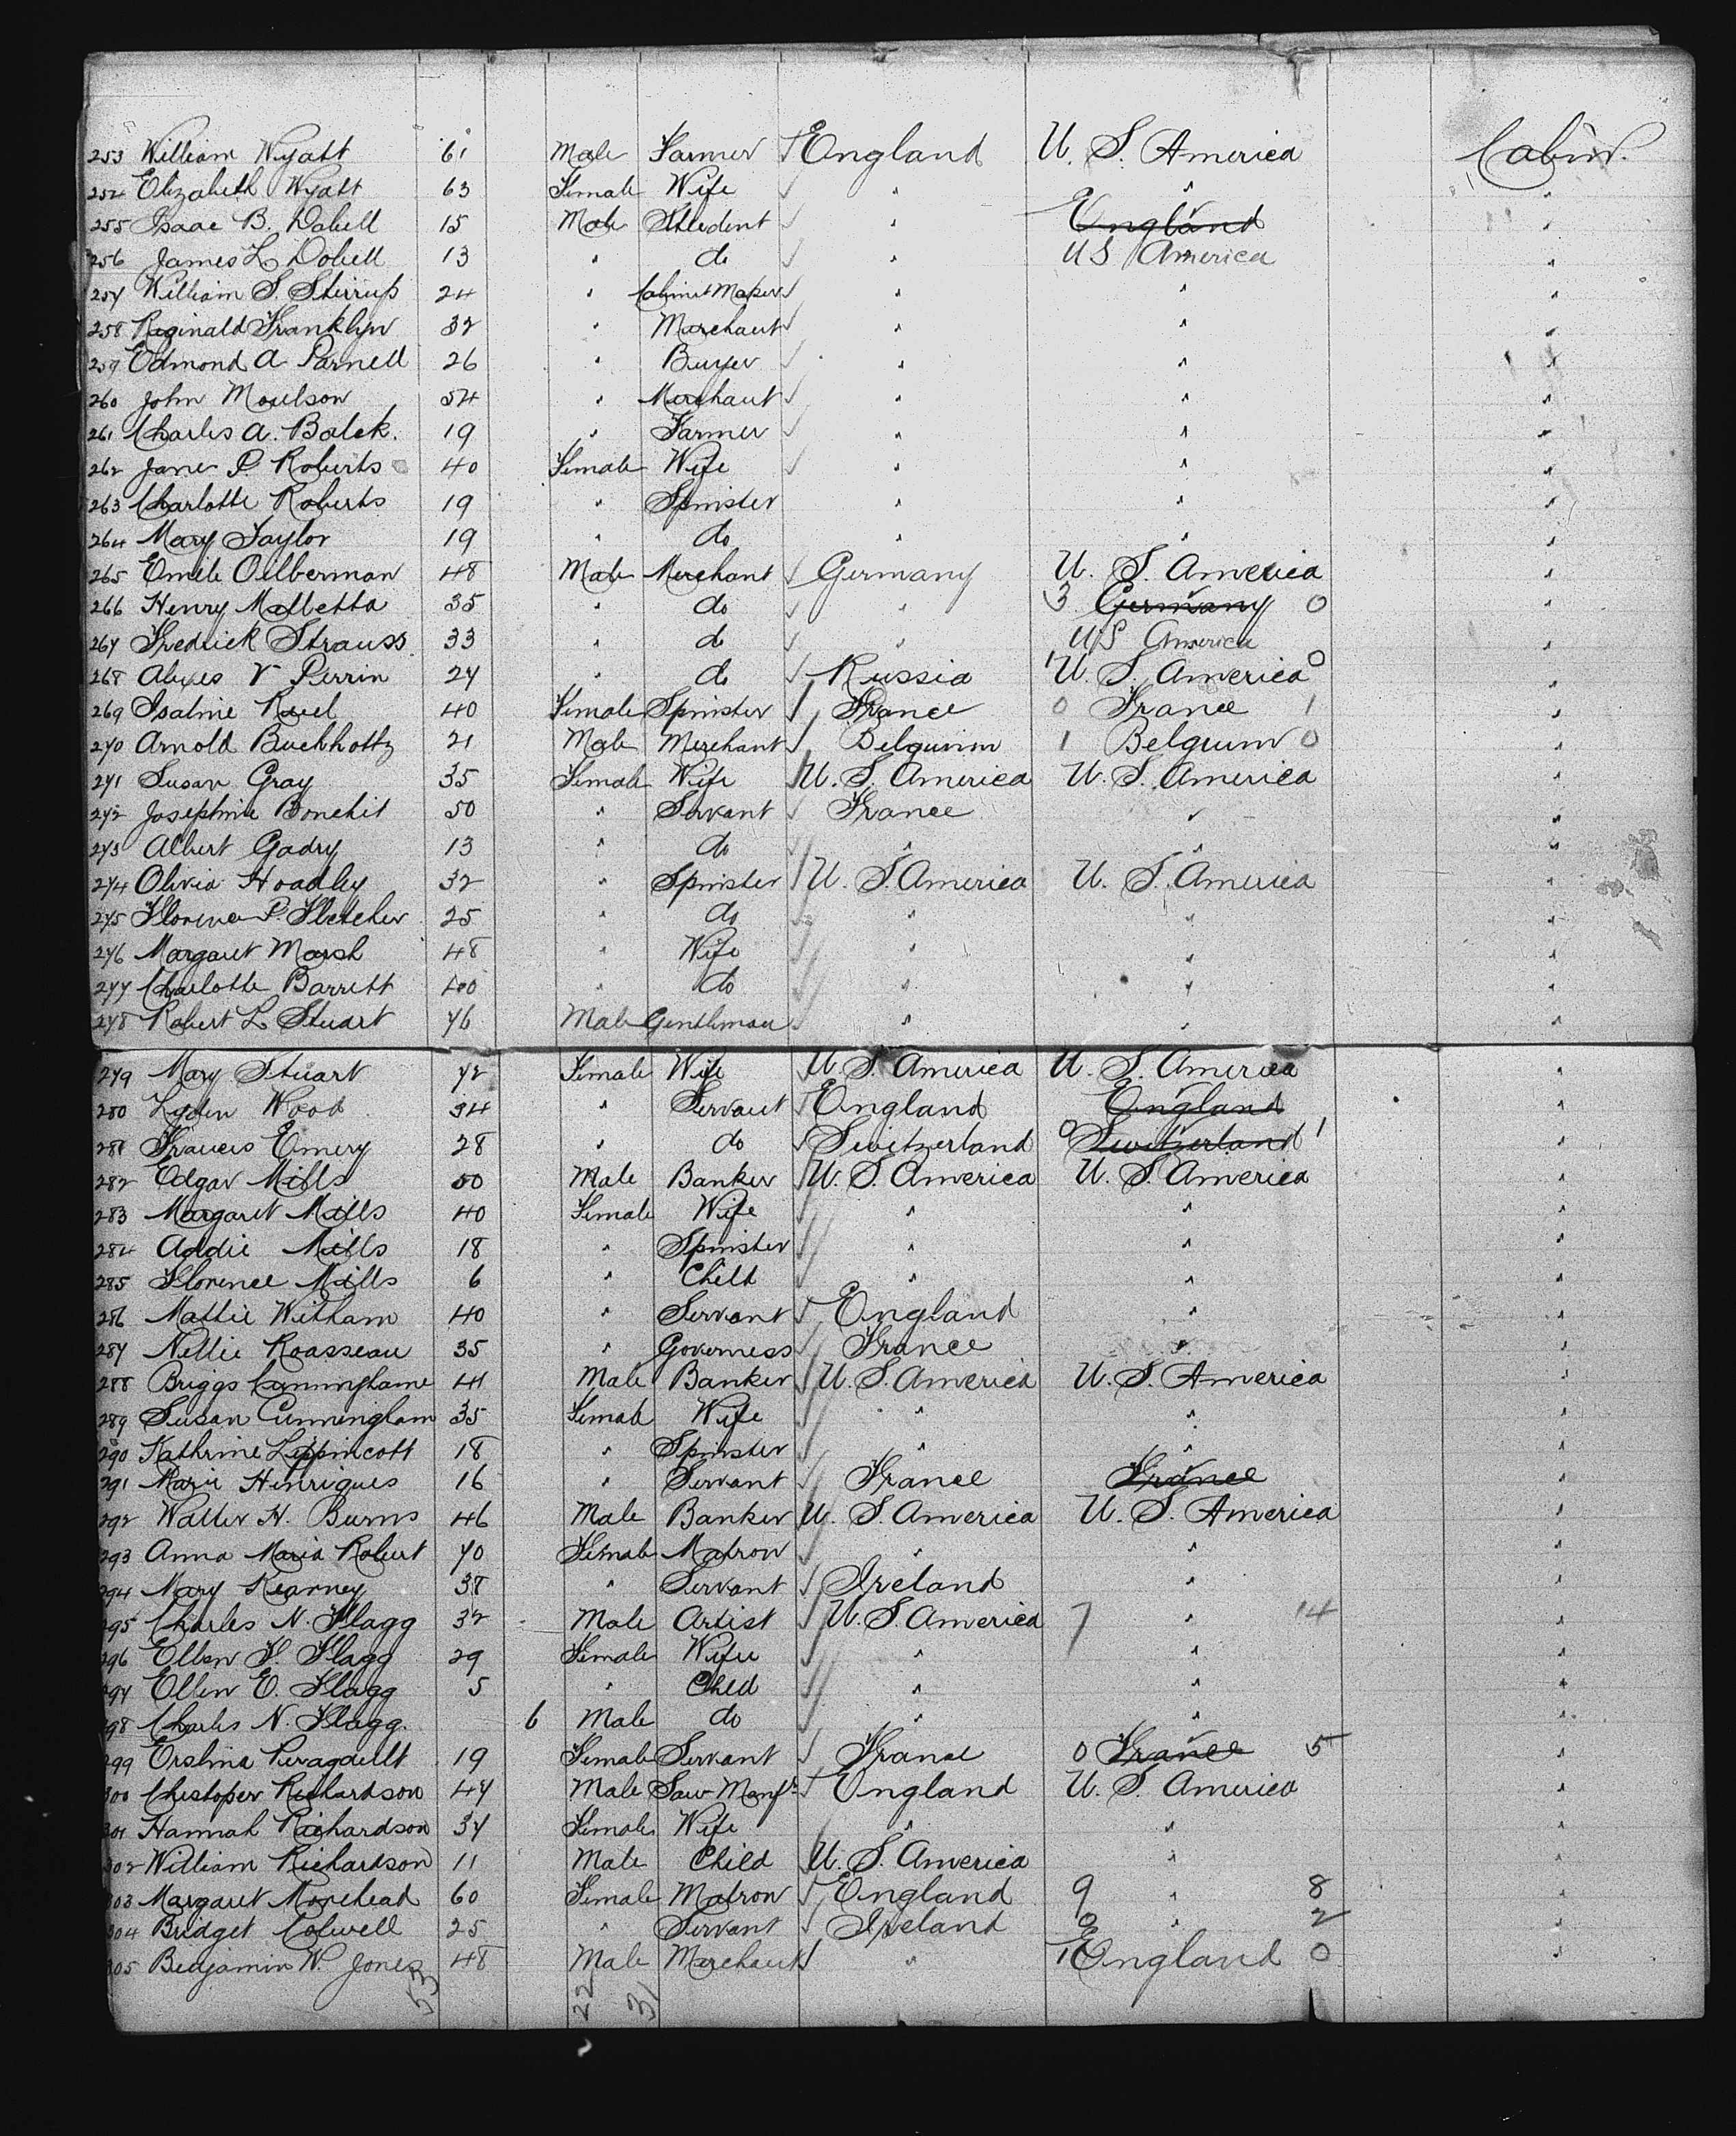 253 William Wyatt 61 Male Farmer England U. S. America Cabin.
254 Elizabeth Wyatt 63 Female Wife " " "
255 Isaac B. Dobell 15 Male Student " England "
256 James L Dobell 13 " do " US America "
257 William S. Stirrup 24 " Cabinet Maker " " "
258 Reginald Franklyn 32 " Merchant " " "
259 Edmond A Parnell 26 " Buyer " " "
260 John Moulson 54 " Merchant " " "
261 Charles A. Balck. 19 " Farmer " " "
262 Jane P. Roberts 40 Female Wife " " "
263 Charlotte Roberts 19 " Spinster " " "
264 Mary Taylor 19 " do " " "
265 Emile Oilberman 48 Male Merchant Germany U. S. America "
266 Henry Malletta 35 " do " 3 Germany 0 "
267 Fredrick Strauss 33 " do " U S America "
268 V Perrin 24 " do Russia 1 U. S. America 0 "
269 Ruel 40 Female Spinster France 0 France 1 "
270 Arnold Buchholtz 21 Male Merchant Belguium 1 Belguim 0 "
271 Susan Gray 35 Female Wife U. S. America U. S. America "
272 Josephine Bonchit 50 " Servant France " "
273 Albert Gadry 13 " do " " "
274 Olivia Hoadley 32 " Spinster U. S. America U. S. America "
275 Florence P. Fletcher 25 " do " " "
276 Margaret Marsh 48 " Wife " " "
277 Charlotte Barrett 40 " do " " "
278 Robert L Stuart 76 Male Gentleman " " "
279 Mary Stuart 72 Female Wife U. S. America U. S. America "
280 Wood 34 " Servant England England "
281 Frances Emery 28 " do Switzerland 0 Switzerland 1 "
282 Edgar Mills 50 Male Banker U. S. America U. S. America "
283 Margaret Mills 40 Female Wife " " "
284 Addie Mills 18 " Spinster " " "
285 Florence Mills 6 " Child " " "
286 Mattie Witham 40 " Servant England " "
287 Nellie Roasseau 35 " Governess France " "
288 Briggs Cunninghame 41 Male Banker U. S. America U. S. America "
289 Susan Cunningham 35 Female Wife " " "
290 Kathrine Lippincott 18 " Spinster " " "
291 Marie Henriques 16 " Servant France France "
292 Walter H. Burns 46 Male Banker U. S. America U. S. America "
293 Anna Maria Robert 70 Female Matron " " "
294 Mary Kearney 38 " Servant Ireland " "
295 Charles N. Flagg 32 Male Artist U. S. America 7 " 14 "
296 Ellen F. Flagg 29 Female Wife " " "
297 Ellen E. Flagg 5 " Child " " "
298 Charles N. Flagg. 6 Male do " " "
299 19 Female Servant France 0 France 5 "
300 Chestoper Richardson 47 Male Saw Manfr England U. S. America "
301 Hannah Richardson 37 Female Wife " " "
302 William Richardson 11 Male Child U. S. America " "
303 Margaret Morehead 60 Female Matron England 9 " 8 "
304 Bridget Colwell 25 " Servant Ireland 0 " 2 "
305 Benjamin W. Jones 48 Male Merchant " 1 England 0 "
53 22 31